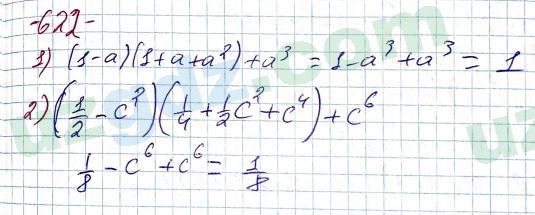 -622-
1) (1-a)(1+a+a²)+a³ = 1-a³+a³ = 1
2) (1/2 - c²)(1/4 + 1/2c² + c⁴) + c⁶
1/8 - c⁶ + c⁶ = 1/8